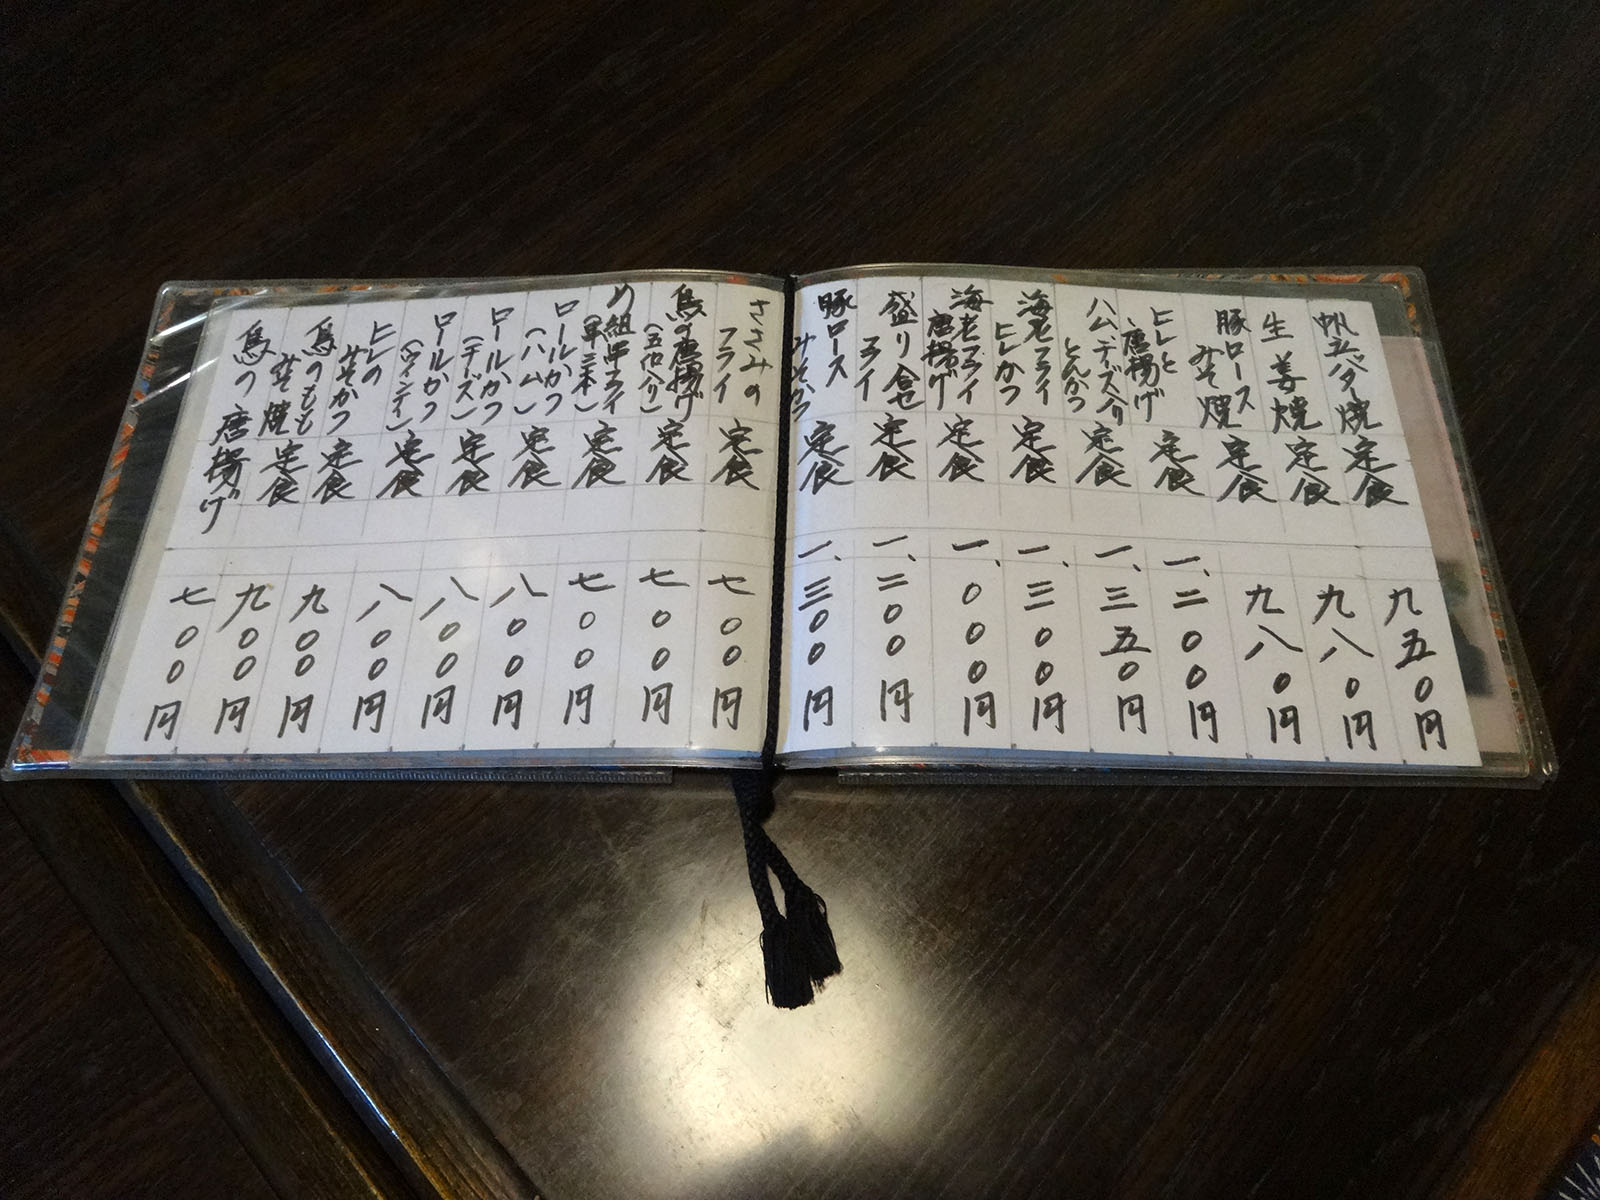 帆立バター焼 定食 九五〇円
生姜焼 定食 九八〇円
豚ロース
みそ焼 定食 九八〇円
ヒレと
唐揚げ 定食 一、二〇〇円
ハムチーズ入り
とんかつ 定食 一、三五〇円
海老フライ
ヒレかつ 定食 一、三〇〇円
海老フライ
唐揚げ 定食 一、〇〇〇円
盛り合せ
フライ 定食 一、二〇〇円
豚ロース
みそかつ 定食 一、三〇〇円
ささみの
フライ 定食 七〇〇円
鳥の唐揚げ
(五個入り) 定食 七〇〇円
め組串フライ
(串三本) 定食 七〇〇円
ロールかつ
(ハム) 定食 八〇〇円
ロールかつ
(チーズ) 定食 八〇〇円
ロールかつ
(ウインナー) 定食 八〇〇円
ヒレの
みそかつ 定食 九〇〇円
鳥のもも
みそ焼 定食 九〇〇円
鳥の唐揚げ 七〇〇円